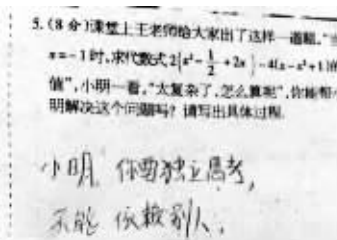 5.(8分)课堂上王老师给大家出了这样一道题,"当
x=-1时,求代数式2(x²-1/2+2x)-4(x-x²+1)的
值",小明一看,"太复杂了,怎么算呢",你能帮小
明解决这个问题吗?请写出具体过程.
小明,你要独立思考,
不能依赖别人.